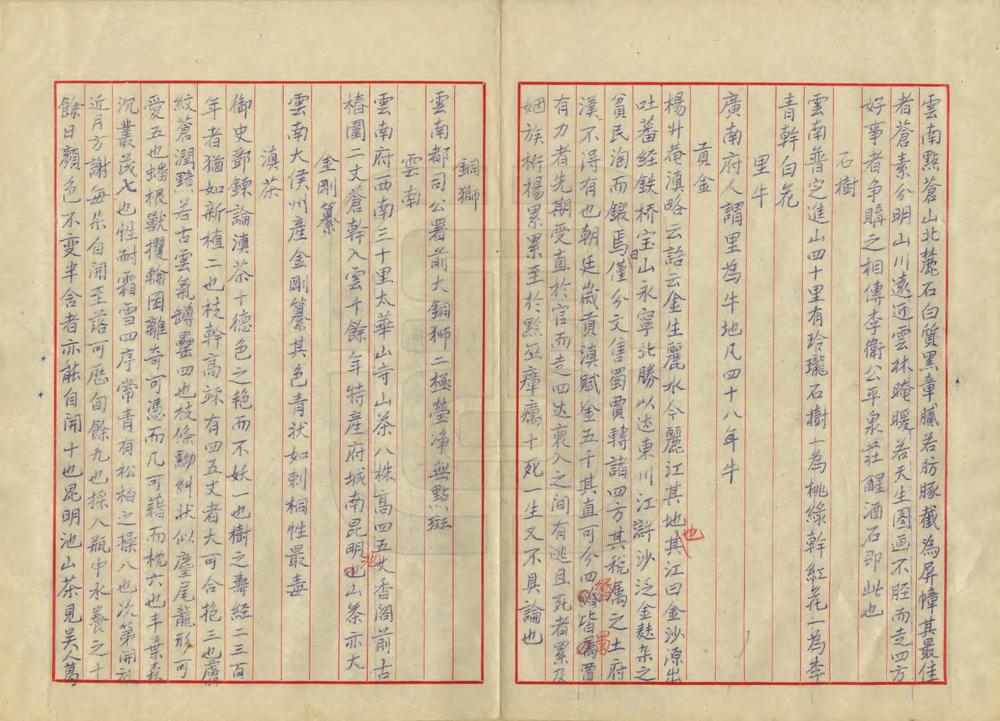 雲南點蒼山北麓石白質黑章膩若肪豚截為屏幛其最佳
者蒼素分明山川遠近雲林晻暖若天生圖画不胫而走四方
好事者争購之相傳李衛公平泉莊醒酒石即此也
石樹
雲南普定進山四十里有玲瓏石樹一為桃綠幹紅花一為李
青幹白花
里牛
廣南府人謂里為牛地凡四十八年牛
貢金
楊升庵滇略云語云金生麗水今麗江其地也其江曰金沙源出
吐蕃経鉄桥宝山永寧北勝以达東川江滸沙泛金麩杂之
貧民淘而鍛焉僅分文售蜀賈轉諸四方其稅属之土府
漢不得有也朝廷歲貢滇賦金五千其直可分四皆属
有力者先期受直於官而走四达裔入之间有逃且死者累及
姻族桁楊累累至於點巫瘴癘十死一生又不具論也
銅獅
雲南都司公署前大銅獅二極莹净無點斑
雲南
雲南府西南三十里太華山寺山茶八株高四五丈香阁前古
椿圍二丈蒼幹入雲千餘年特產府城南昆明池山茶亦大
金剛纂
雲南大侯州產金剛纂其色青状如刺桐性最毒
滇茶
御史鄧鍊論滇茶十德色之艳而不妖一也樹之壽経二三百
年者猶如新植二也枝幹高竦有四五丈者大可合抱三也膚
紋蒼潤黯若古雲氣罇罍四也枝條黝糾状似麈尾龍形可
愛五也蟠根獸攫輪囷離奇可憑而几可藉而枕六也丰葉森
沉叢茂七也性耐霜雪四序常青有松柏之操八也次第開放
近月方謝每朵自開至落可歷旬餘九也採入瓶中水養之十
餘日顏色不变半含者亦能自開十也昆明池山茶見吴人萬